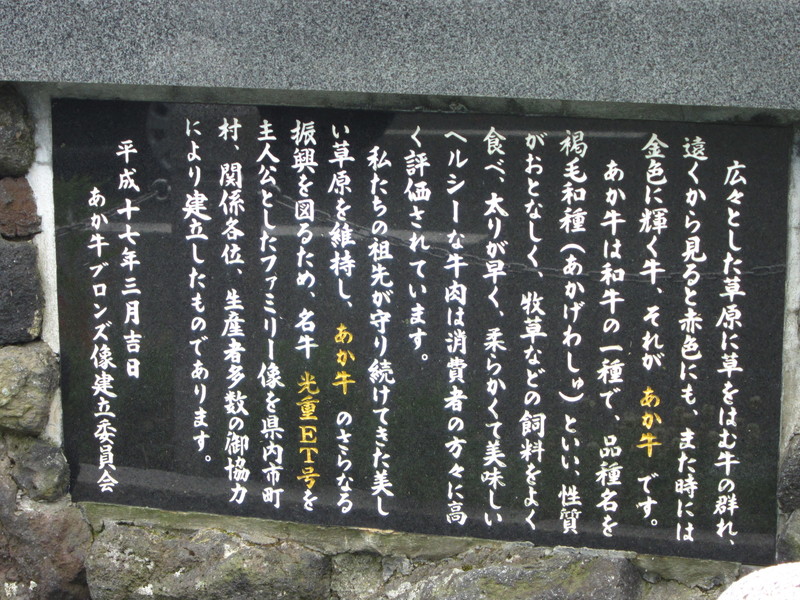 広々とした草原に草をはむ牛の群れ、
遠くから見ると赤色にも、また時には
金色に輝く牛、それが あか牛 です。
あか牛は和牛の一種で、品種名を
褐毛和種(あかげわしゅ)といい、性質
がおとなしく、牧草などの飼料をよく
食べ、太りが早く、柔らかくて美味しい
ヘルシーな牛肉は消費者の方々に高
く評価されています。
私たちの祖先が守り続けてきた美し
い草原を維持し、あか牛 のさらなる
振興を図るため、名牛 光重ET号を
主人公としたファミリー像を県内市町
村、関係各位、生産者多数の御協力
により建立したものであります。
平成十七年三月吉日
あか牛ブロンズ像建立委員会